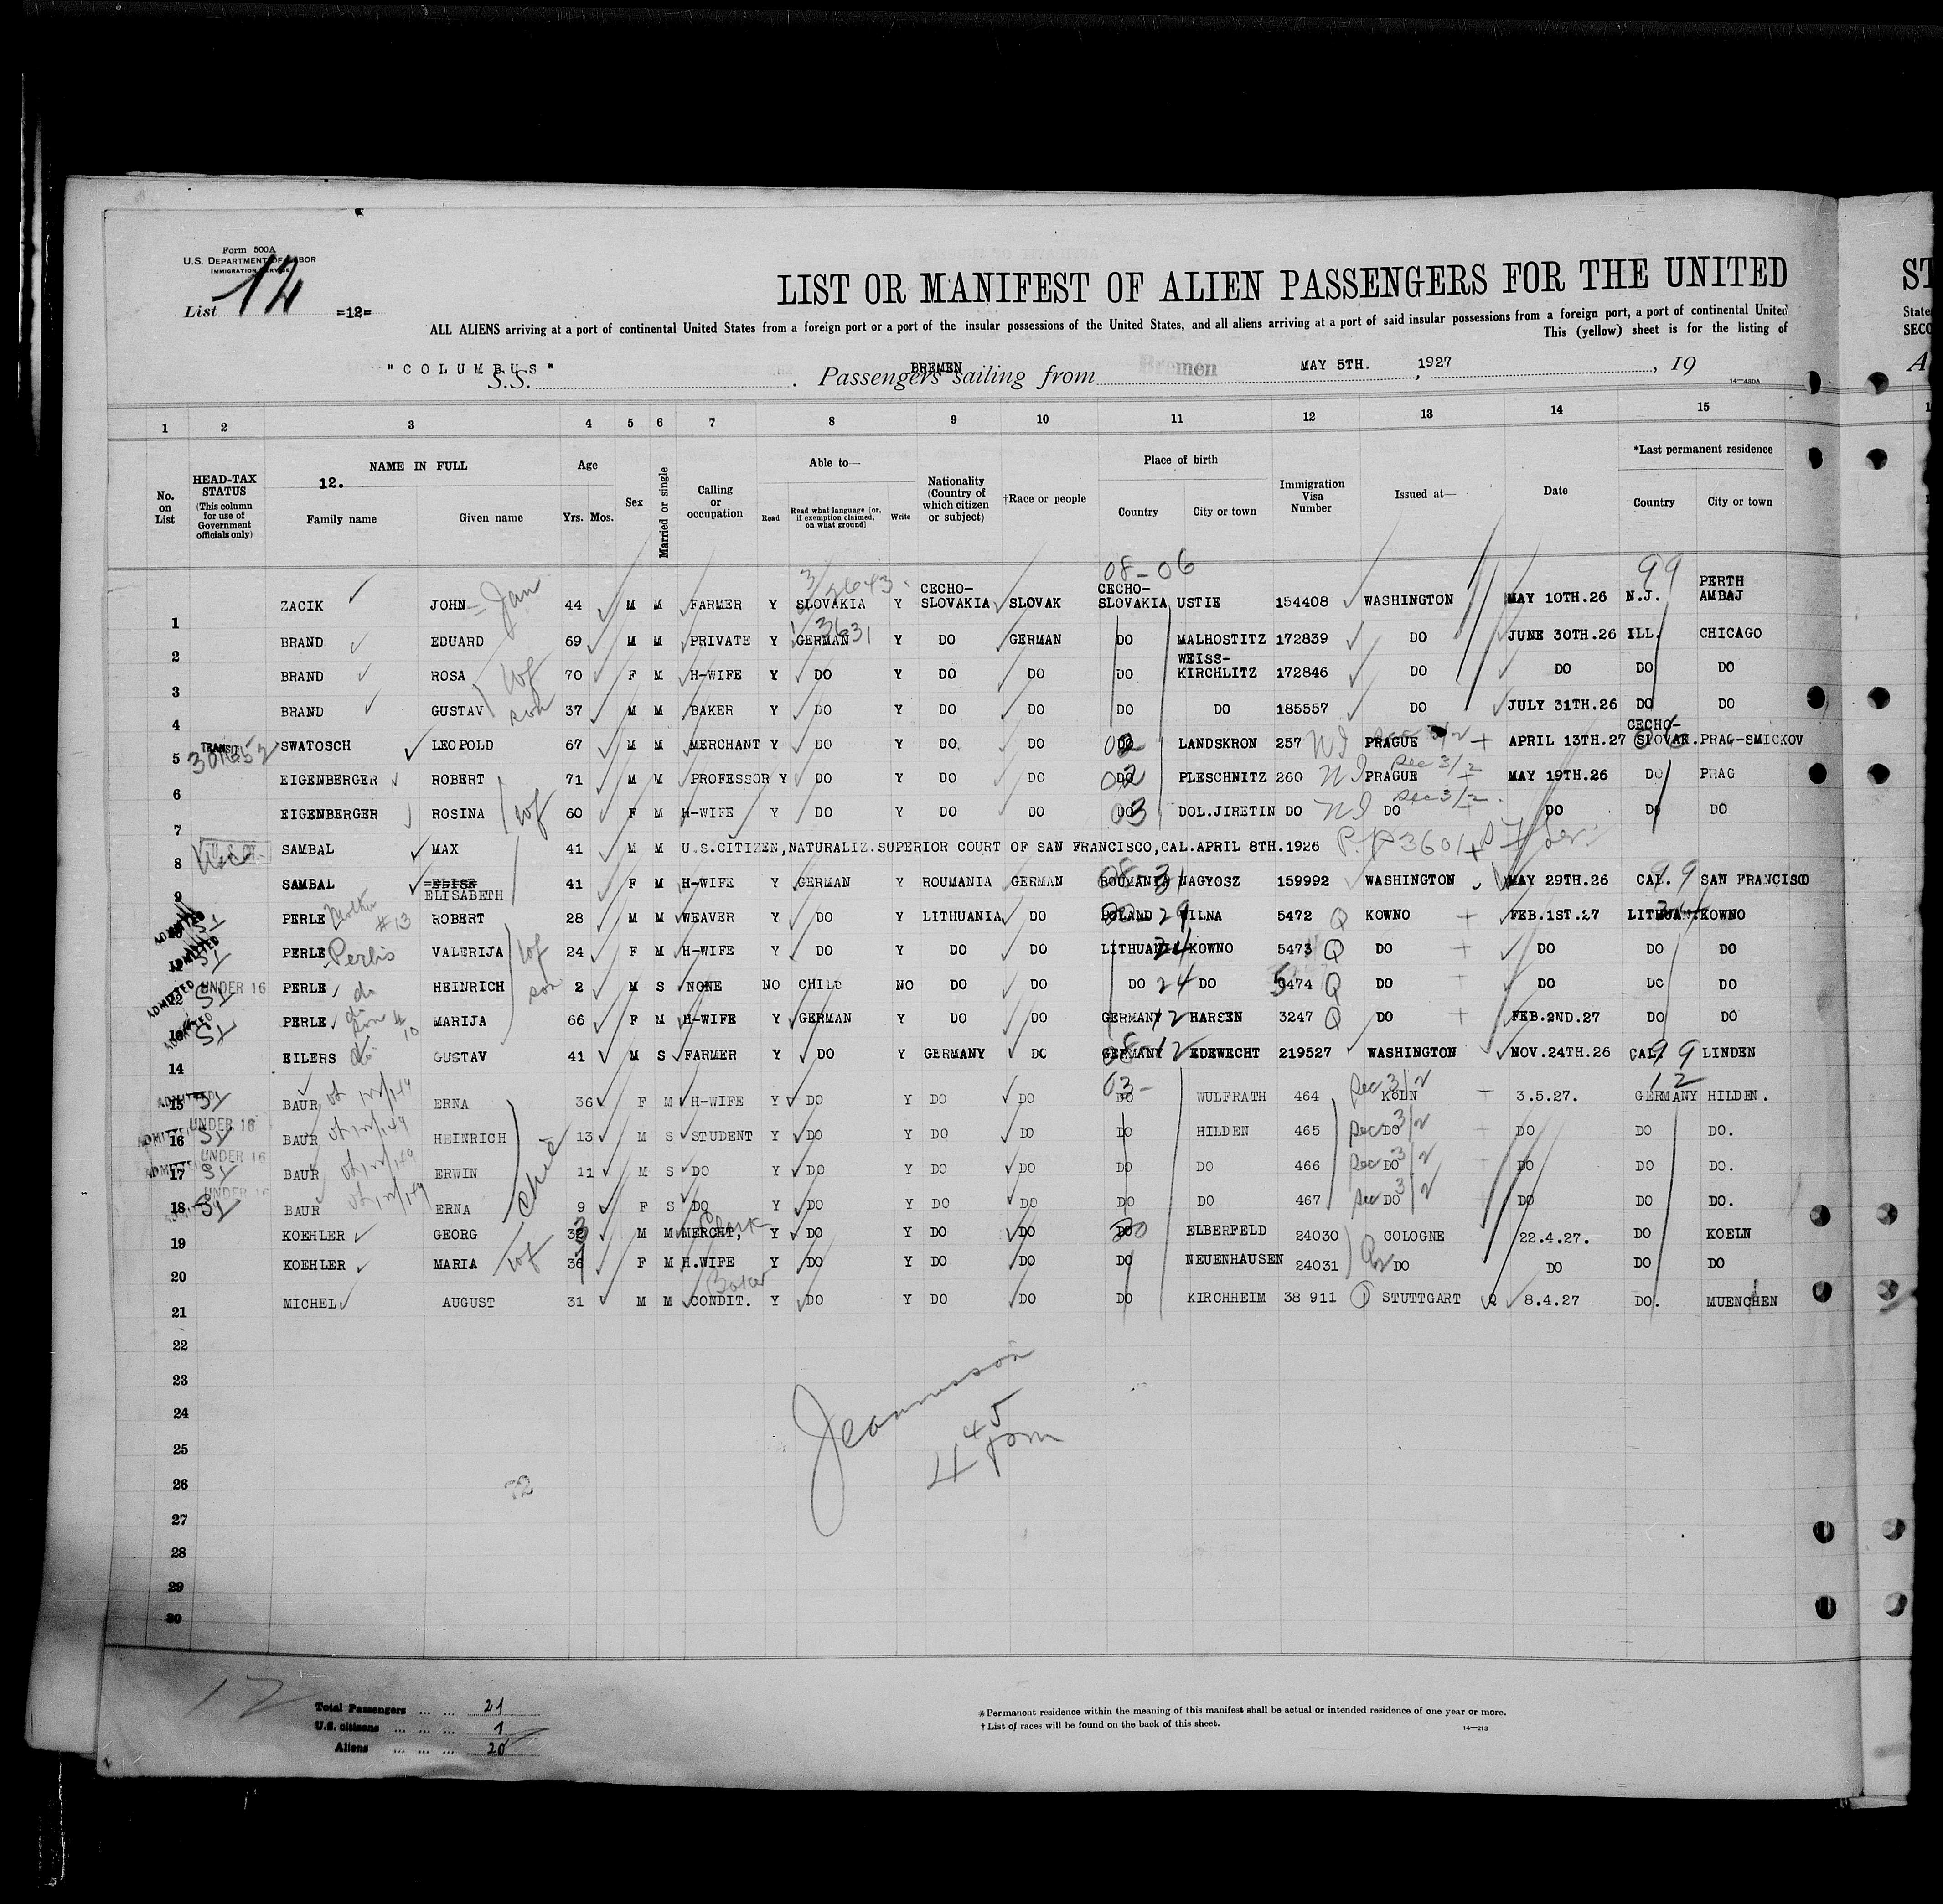 Form 500A
U.S. DEPARTMENT OF LABOR
IMMIGRATION SERVICE
List 12 =12=
LIST OR MANIFEST OF ALIEN PASSENGERS FOR THE UNITED ST
ALL ALIENS arriving at a port of continental United States from a foreign port or a port of the insular possessions of the United States, and all aliens arriving at a port of said insular possessions from a foreign port, a port of continental United State
This (yellow) sheet is for the listing of SECO
S.S. "COLUMBUS" Passengers sailing from BREMEN Bremen MAY 5TH. 1927, 19
14—430A
1 2 3 4 5 6 7 8 9 10 11 12 13 14 15
No. on List
HEAD-TAX STATUS (This column for use of Government officials only)
NAME IN FULL 12. Family name Given name
Age Yrs. Mos.
Sex
Married or single
Calling or occupation
Able to— Read Read what language [or, if exemption claimed, on what ground] Write
Nationality (Country of which citizen or subject)
†Race or people
Place of birth Country City or town
Immigration Visa Number
Issued at—
Date
*Last permanent residence Country City or town
08-06 99
1 ZACIK JOHN = Jan 44 M M FARMER Y SLOVAKIA Y CECHO-SLOVAKIA SLOVAK CECHO-SLOVAKIA USTIE 154408 WASHINGTON MAY 10TH.26 N.J. PERTH AMBAJ
2 BRAND EDUARD 69 M M PRIVATE Y GERMAN Y DO GERMAN DO MALHOSTITZ 172839 DO JUNE 30TH.26 ILL. CHICAGO
3 BRAND ROSA wf 70 F M H-WIFE Y DO Y DO DO DO WEISS-KIRCHLITZ 172846 DO DO DO DO
4 BRAND GUSTAV son 37 M M BAKER Y DO Y DO DO DO DO 185557 DO JULY 31TH.26 DO DO
5 TRANSIT SWATOSCH LEOPOLD 67 M M MERCHANT Y DO Y DO. DO DO LANDSKRON 257 PRAGUE APRIL 13TH.27 CECHO-SLOVAK. PRAG-SMICKOV
6 EIGENBERGER ROBERT 71 M M PROFESSOR Y DO Y DO DO DO PLESCHNITZ 260 PRAGUE Sec 3/2 MAY 19TH.26 DO PRAG
7 EIGENBERGER ROSINA wf 60 F M H-WIFE Y DO Y DO DO DO DOL.JIRETIN DO DO Sec 3/2 DO DO DO
8 SAMBAL MAX 41 M M U.S.CITIZEN,NATURALIZ.SUPERIOR COURT OF SAN FRANCISCO,CAL.APRIL 8TH.1926
9 SAMBAL ELISE ELISABETH 41 F M H-WIFE Y GERMAN Y ROUMANIA GERMAN ROUMANIA NAGYOSZ 159992 WASHINGTON MAY 29TH.26 CAL. 99 SAN FRANCISCO
PERLE Mother #13 ROBERT 28 M M WEAVER Y DO Y LITHUANIA DO POLAND WILNA 5472 Q KOWNO FEB.1ST.27 LITHUAN. KOWNO
ADMITTED PERLE Perlis VALERIJA wf 24 F M H-WIFE Y DO Y DO DO LITHUANIA KOWNO 5473 Q DO DO DO DO
ADMITTED UNDER 16 PERLE do HEINRICH son 2 M S NONE NO CHILD NO DO DO DO 24 DO 5474 Q DO DO DO DO
ADMITTED PERLE do son # 10 MARIJA 66 F M H-WIFE Y GERMAN Y DO DO GERMANY 12 HARSEN 3247 Q DO FEB.2ND.27 DO DO
14 EILERS GUSTAV 41 M S FARMER Y DO Y GERMANY DO GERMANY EDEWECHT 219527 WASHINGTON NOV.24TH.26 CAL. 99 LINDEN
15 BAUR ERNA 36 M F M H-WIFE Y DO Y DO DO DO WULFRATH 464 Sec 3/2 KOLN 3.5.27. GERMANY 12 HILDEN.
16 UNDER 16 BAUR HEINRICH 13 M S STUDENT Y DO Y DO DO DO HILDEN 465 Sec 3/2 DO DO DO DO.
17 UNDER 16 BAUR ERWIN 11 M S DO Y DO Y DO DO DO DO 466 Sec 3/2 DO DO DO DO.
18 UNDER 16 BAUR ERNA 9 F S DO Y DO Y DO DO DO DO 467 Sec 3/2 DO DO DO DO.
19 KOEHLER GEORG M M MERCHT, Clerk Y DO Y DO DO DO ELBERFELD 24030 COLOGNE 22.4.27. DO KOELN
20 KOEHLER MARIA wf 36 F M H.WIFE Y DO Y DO DO DO NEUENHAUSEN 24031 DO DO DO DO
21 MICHEL AUGUST 31 M M CONDIT. Baker Y DO Y DO DO DO KIRCHHEIM 38 911 STUTTGART 8.4.27 DO. MUENCHEN
22
23
24
25
26
27
28
29
30
4 45 pm
72
12
Total Passengers ... ... 21
U.S. citizens ... ... ... 1
Aliens ... ... ... 20
*Permanent residence within the meaning of this manifest shall be actual or intended residence of one year or more.
†List of races will be found on the back of this sheet.
14—213